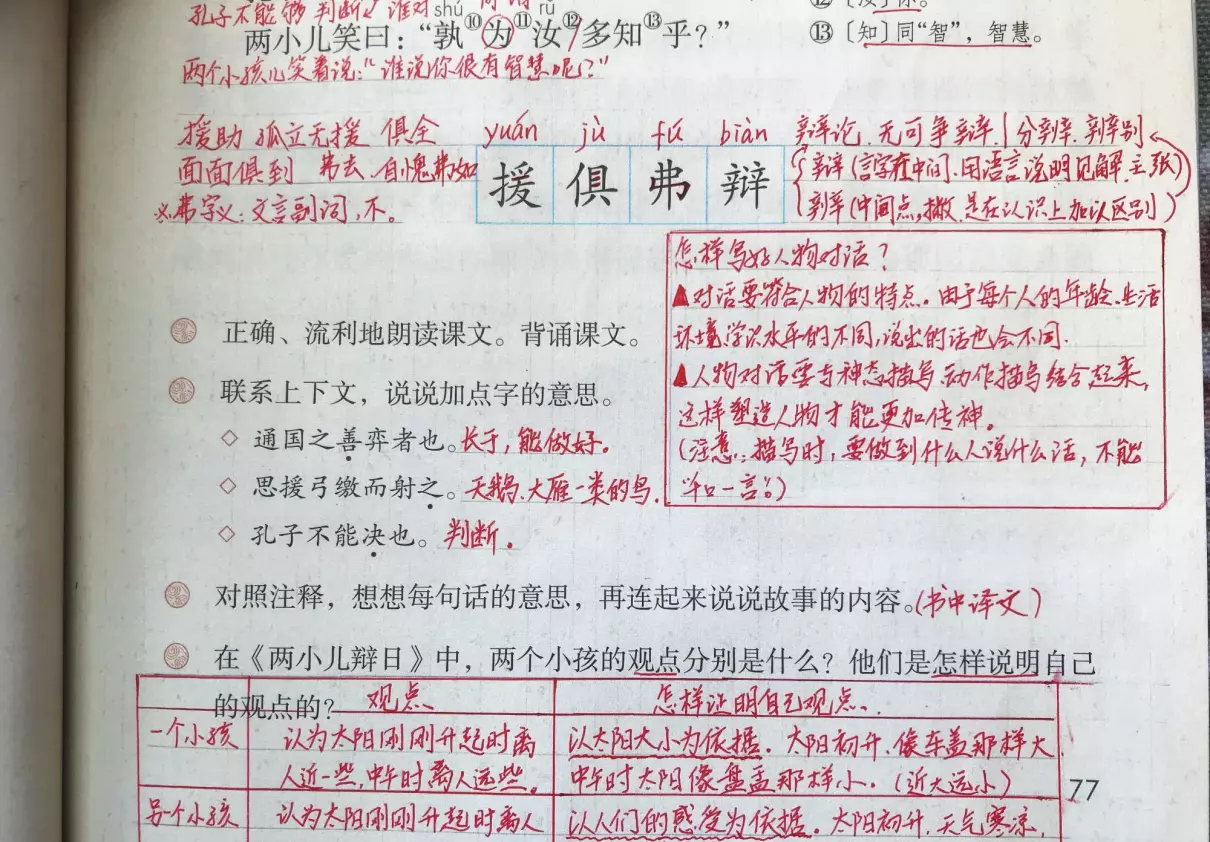 孔子不能够判断谁对
shú rǔ
⑬〔知〕同“智”，智慧。
两小儿笑曰：“孰⑩为⑪汝⑫多知⑬乎？”
两个小孩儿笑着说：“谁说你很有智慧呢？”
援助 孤立无援 俱全 yuán jù fú biàn 辩论 无可争辩 分辨 辨别
面面俱到 弗去 自愧弗如 援俱弗辩 辩（言字在中间、用语言说明见解、主张）
※弗字义：文言副词，不。 辨（中间点，撇，是在认识上加以区别）
怎样写好人物对话？
▲对话要符合人物的特点。由于每个人的年龄、生活
环境、学识水平的不同，说出的话也会不同。
▲人物对话要与神态描写、动作描写结合起来，
这样塑造人物才能更加传神。
（注意：描写时，要做到什么人说什么话，不能
千口一言。）
正确、流利地朗读课文。背诵课文。
联系上下文，说说加点字的意思。
◇ 通国之善弈者也。长于，能做好。
◇ 思援弓缴而射之。天鹅、大雁一类的鸟。
◇ 孔子不能决也。判断。
对照注释，想想每句话的意思，再连起来说说故事的内容。（书中译文）
在《两小儿辩日》中，两个小孩的观点分别是什么？他们是怎样说明自己
的观点的？ 观点 怎样证明自己观点
一个小孩 认为太阳刚刚升起时离 以太阳大小为依据。太阳初升，像车盖那样大，
人近一些，中午时离人远些。 中午时太阳像盘盂那样小。（近大远小）
77
另个小孩 认为太阳刚刚升起时离人 以人们的感受为依据。太阳初升，天气寒凉，